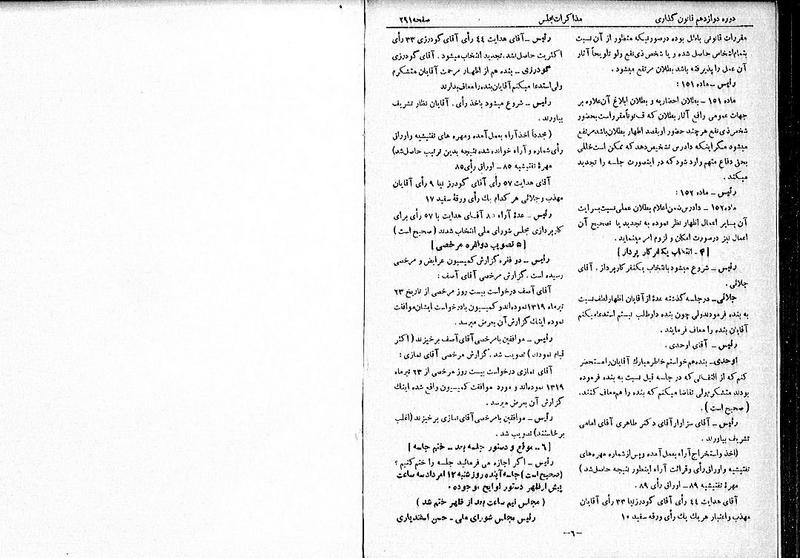 دوره دوازدهم قانون گذاری
مذاکرات مجلس
صفحه ۲۹۱
مقررات قانونی باطل بوده درصورتیکه منظور از آن نسبت
بتمام اشخاص حاصل شده و یا شخص ذی نفع ولو تلویحاً آثار
آن عمل را پذیرفته باشد بطلان مرتفع میشود .
رئیس – ماده ۱۵۱ :
ماده ۱۵۱ – بطلان احضاریه و بطلان ابلاغ آن علاوه بر
جهات عمومی رافع آثار بطلان که قانوناً مقرر است بحضور
شخص ذی نفع هر چند حضور او بقصد اظهار بطلان باشد مرتفع
میشود مگر اینکه دادرس تشخیص دهد که ممکن است خللی
بحق دفاع متهم وارد شود که در اینصورت جلسه را تجدید
میکند .
رئیس – ماده ۱۵۲ :
ماده ۱۵۲ – دادرس ضمن اعلام بطلان عملی نسبت بسرایت
آن بسایر اعمال اظهار نظر نموده به تجدید یا تصحیح آن
اعمال نیز درصورت امکان و لزوم امر مینماید .
[ ۴ – انتخاب یکنفر کار پرداز ]
رئیس – شروع میشود بانتخاب یکنفر کارپرداز . آقای
جلائی .
جلائی – درجلسه گذشته عدهٔ از آقایان اظهار لطف نسبت
به بنده فرمودند ولی چون بنده داوطلب نیستم استدعا میکنم
آقایان بنده را معاف فرمایند .
رئیس – آقای اوحدی .
اوحدی – بنده هم خواستم خاطر مبارک آقایان را مستحضر
کنم که از التفاتی که در جلسه قبل نسبت به بنده فرموده
بودند متشکرم ولی تقاضا میکنم که بنده را هم معاف کنند .
( صحیح است ) .
رئیس – آقای سزاوار آقای دکتر طاهری آقای امامی
تشریف بیاورند .
(اخذ و استخراج آراء بعمل آمده و پس از شماره مهره های
تفتیشیه و اوراق رأی و قرائت آراء اینطور نتیجه حاصل شد )
مهره تفتیشیه ۸۹ – اوراق رأی ۸۹ .
آقای هدایت ۴۴ رأی آقای گودرزنیا ۳۳ رأی آقایان
مهذب و اعتبار هر یک یک رأی ورقه سفید ۱۰
رئیس – آقای هدایت ۴۴ رأی آقای گودرزی ۳۳ رأی
اکثریت حاصل نشد . تجدید انتخاب میشود . آقای گودرزی
گودرزی – بنده هم از اظهار مرحمت آقایان متشکرم
ولی استدعا میکنم آقایان بنده را معاف بدارند
رئیس – شروع میشود باخذ رأی . آقایان نظار تشریف
بیاورند .
(مجدداً اخذ آراء بعمل آمده و مهره های تفتیشیه و اوراق
رأی شماره و آراء خوانده شده نتیجه بدین ترتیب حاصل شد)
مهرهٔ تفتیشیه ۸۵ – اوراق رأی ۸۵
آقای هدایت ۵۷ رأی آقای گودرزنیا ۹ رأی آقایان
مهذب و جلائی هر کدام یک رأی ورقهٔ سفید ۱۷
رئیس – عدهٔ آراء ۸۵ آقای هدایت با ۵۷ رأی برای
کارپردازی مجلس شورای ملی انتخاب شدند ( صحیح است )
[ ۵ تصویب دو فقره مرخصی ]
رئیس – دو فقره گزارش کمیسیون عرایض و مرخصی
رسیده است . گزارش مرخصی آقای آصف :
آقای آصف درخواست بیست روز مرخصی از تاریخ ۲۳
تیرماه ۱۳۱۹ نموده اند و کمیسیون با درخواست ایشان موافقت
نموده اینک گزارش آن بعرض میرسد .
رئیس – موافقین با مرخصی آقای آصف برخیزند ( اکثر
قیام نمودند ) تصویب شد . گزارش مرخصی آقای نمازی :
آقای نمازی درخواست بیست روز مرخصی از ۲۳ تیرماه
۱۳۱۹ نموده اند و مورد موافقت کمیسیون واقع شده اینک
گزارش آن بعرض میرسد .
رئیس – موافقین با مرخصی آقای نمازی برخیزند (اغلب
برخاستند) تصویب شد .
[ ۶ – موقع و دستور جلسه بعد – ختم جلسه ]
رئیس – اگر اجازه می فرمائید جلسه را ختم کنیم ؟
(صحیح است) جلسه آینده روز شنبه ۱۲ امرداد سه ساعت
پیش از ظهر دستور لوایح موجوده .
( مجلس نیم ساعت بعد از ظهر ختم شد )
رئیس مجلس شورای ملی – حسن اسفندیاری
–۶–